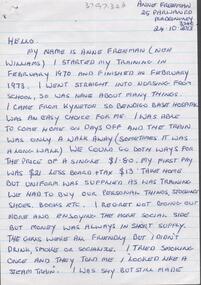 3797.326
ANNE FREEMAN
25 PARLIAMEN
MACORNEY
24.10.2013
HELLO.
MY NAME IS ANNE FREEMAN (NEE
WILLIAMS) I STARTED MY TRAINING IN
FEBRUARY 1970 AND FINISHED IN FEBRUARY
1973. I WENT STRAIGHT INTO NURSING FROM
SCHOOL, SO WAS NAIVE ABOUT MANY THINGS.
I CAME FROM KYNETON SO BENDIGO BASE HOSPITAL
WAS AN EASY CHOICE FOR ME. I WAS ABLE
TO COME HOME ON DAYS OFF AND THE TRAIN
WAS ONLY A WALK AWAY (SOMETIMES IT WAS
A LONG WALK) WE COULD GO BOTH WAYS FOR
THE PRICE OF A SINGLE $1.80. MY FIRST PAY
WAS $21 LESS BOARD + TAX $13 TAKE HOME
BUT UNIFORM WAS SUPPLIED AS WAS TRAINING
WE HAD TO BUY OUR PERSONAL THINGS, STOCKINGS
SHOES, BOOKS ETC. I REGRET NOT GOING OUT
MORE AND ENJOYING THE MORE SOCIAL SIDE
BUT MONEY WAS ALWAYS IN SHORT SUPPLY.
THE GIRLS WERE ALL FRIENDLY BUT I DIDN'T
DRINK, SMOKE OR SOCIALIZE. I TRIED SMOKING
ONCE AND THEY TOLD ME I LOOKED LIKE A
STEAM TRAIN. I WAS SHY BUT STILL MADE